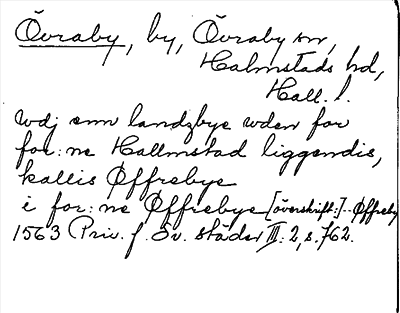 Övraby, by, Övraby sn,
Halmstads hd,
Hall. l.
wdj enn landzbye wden for
for:ne Hallmstad liggendis,
kallis Øffrebye
i for:ne Øffrebye [överskrift:] - Øffreby
1563 Priv. f. Sv. städer III: 2, s. 762.